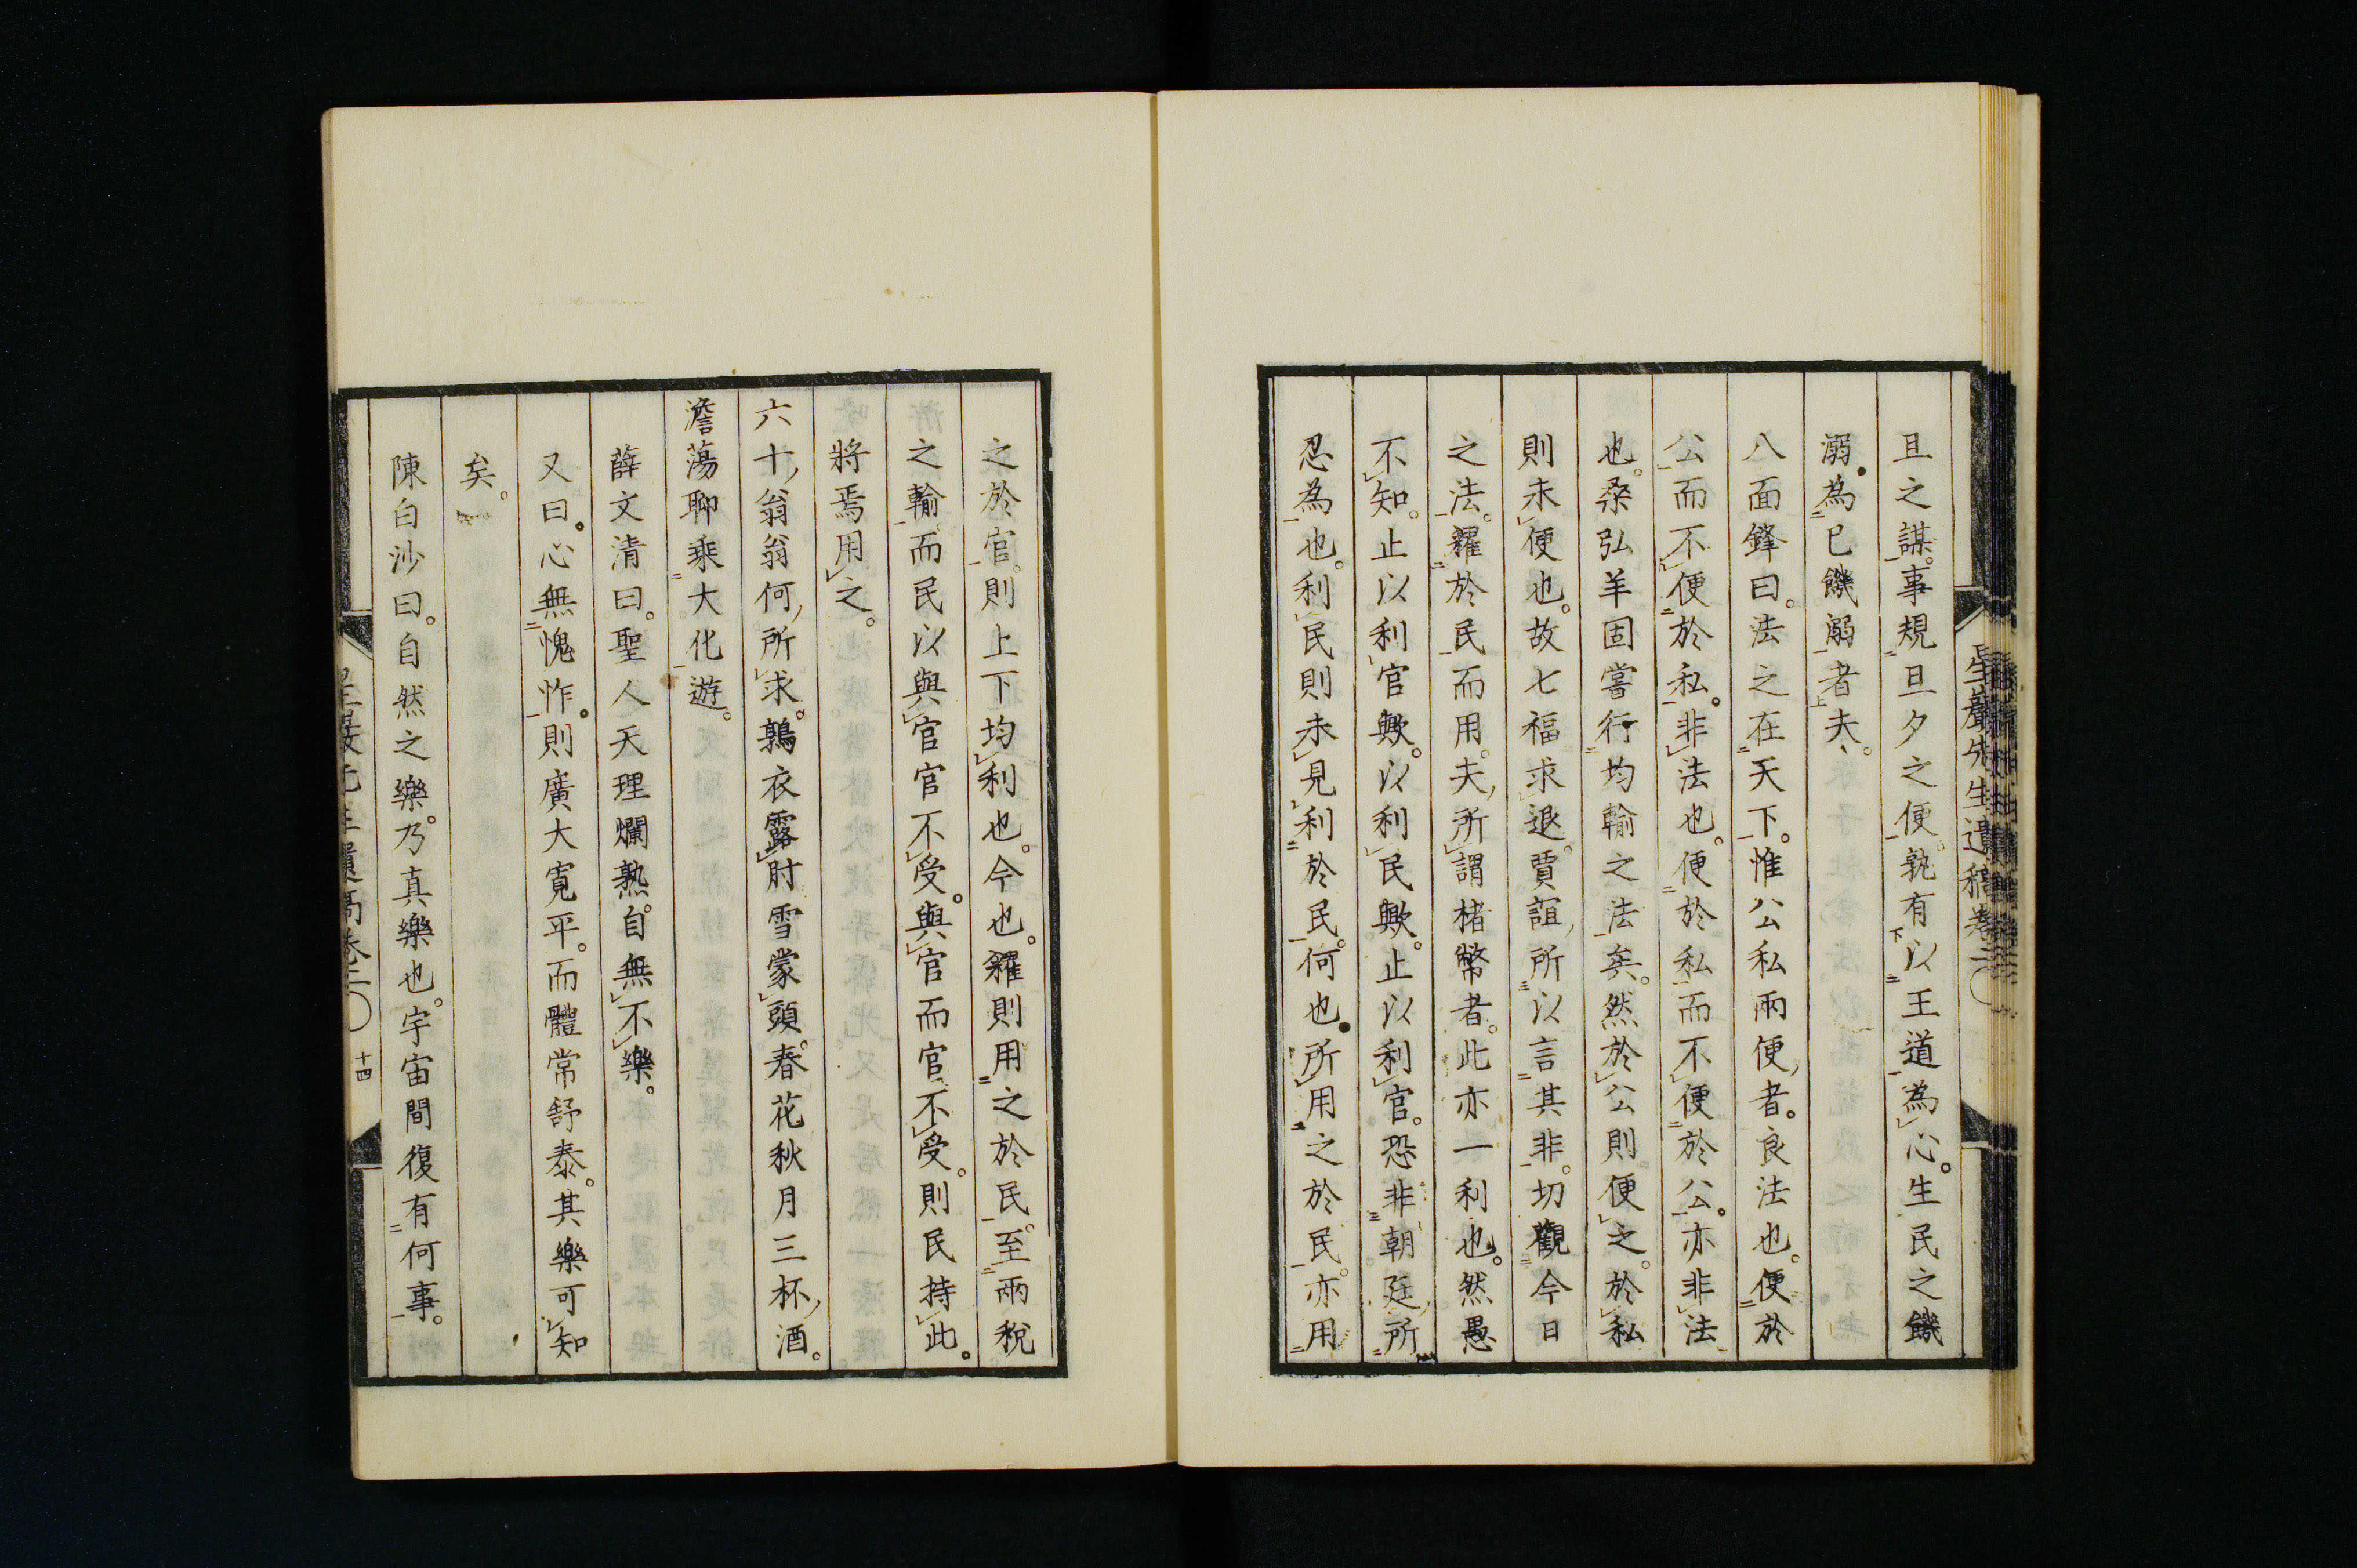 且之謀。事規旦夕之便。孰有以王道為心。生民之饑
溺。為已饑溺者夫。
八面鋒曰。法之在天下。惟公私兩便者。良法也。便於
公而不便於私。非法也。便於私而不便於公。亦非法
也。桑弘羊固嘗行均輸之法矣。然於公則便之。於私
則未便也。故七福求退。賈誼所以言其非。切觀今日
之法。糴於民而用。夫所謂楮幣者。此亦一利也。然愚
不知。止以利官歟。以利民歟。止以利官。恐非朝廷所
忍為也。利民則未見利於民。何也。所用之於民。亦用
之於官。則上下均利也。今也。糴則用之於民。至兩稅
之輸而民以與官官不受。與官而官不受。則民持此。
將焉用之。
六十翁翁何所求。鶉衣露肘雪蒙頭。春花秋月三杯酒。
澹蕩聊乘大化遊。
薛文清曰。聖人天理爛熟。自無不樂。
又曰。心無愧怍。則廣大寬平。而體常舒泰。其樂可知
矣。
陳白沙曰。自然之樂。乃真樂也。宇宙間復有何事。
星巖先生遺稿卷二
十四